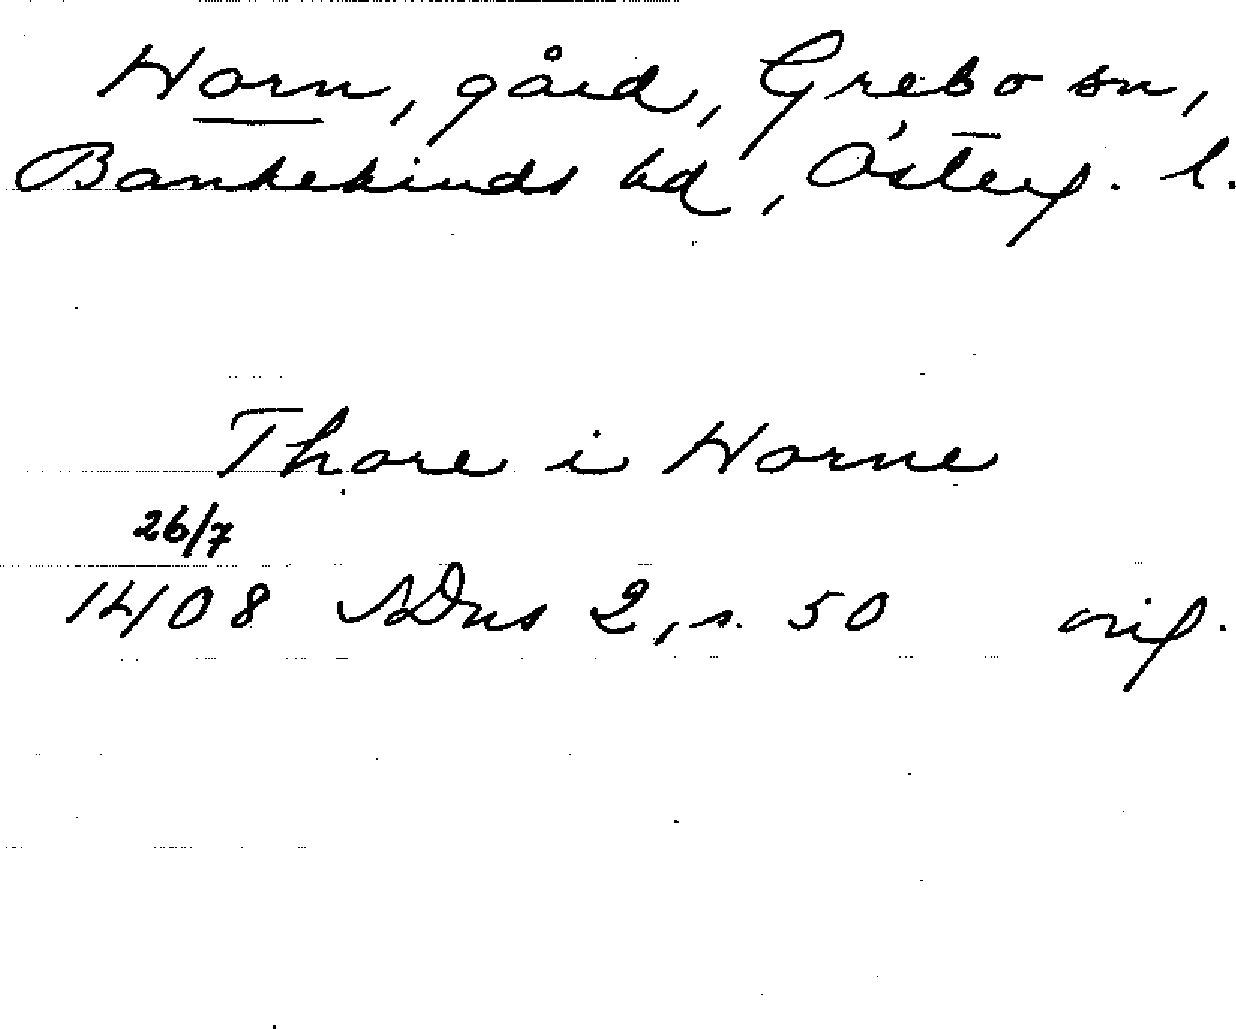 Horn, gård, Grebo sn,
Bankekinds hd, Österg. l.
Thore i Horne
26/7
1408 SDns 2, s. 50 orig.